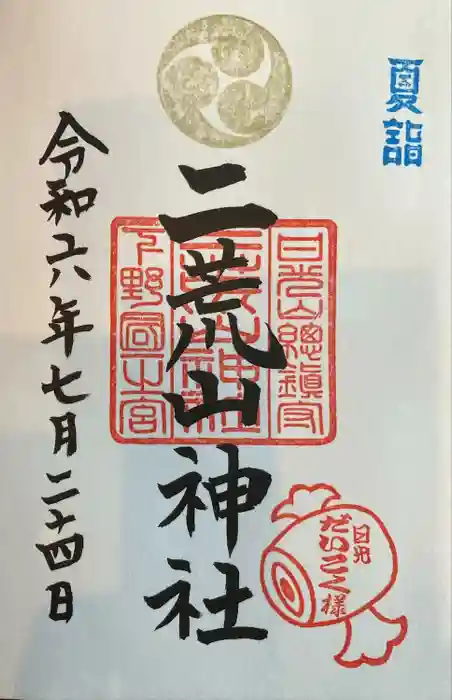 夏詣
日光山總鎮守
二荒山神社
下野國一宮
二荒山神社
日光
だいこく様
令和六年七月二十四日